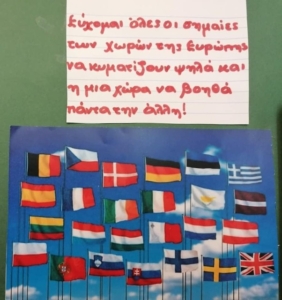 Εύχομαι όλες οι σημαίες
των χωρών της Ευρώπης
να κυματίζουν ψηλά και
η μια χώρα να βοηθά
πάντα την άλλη!